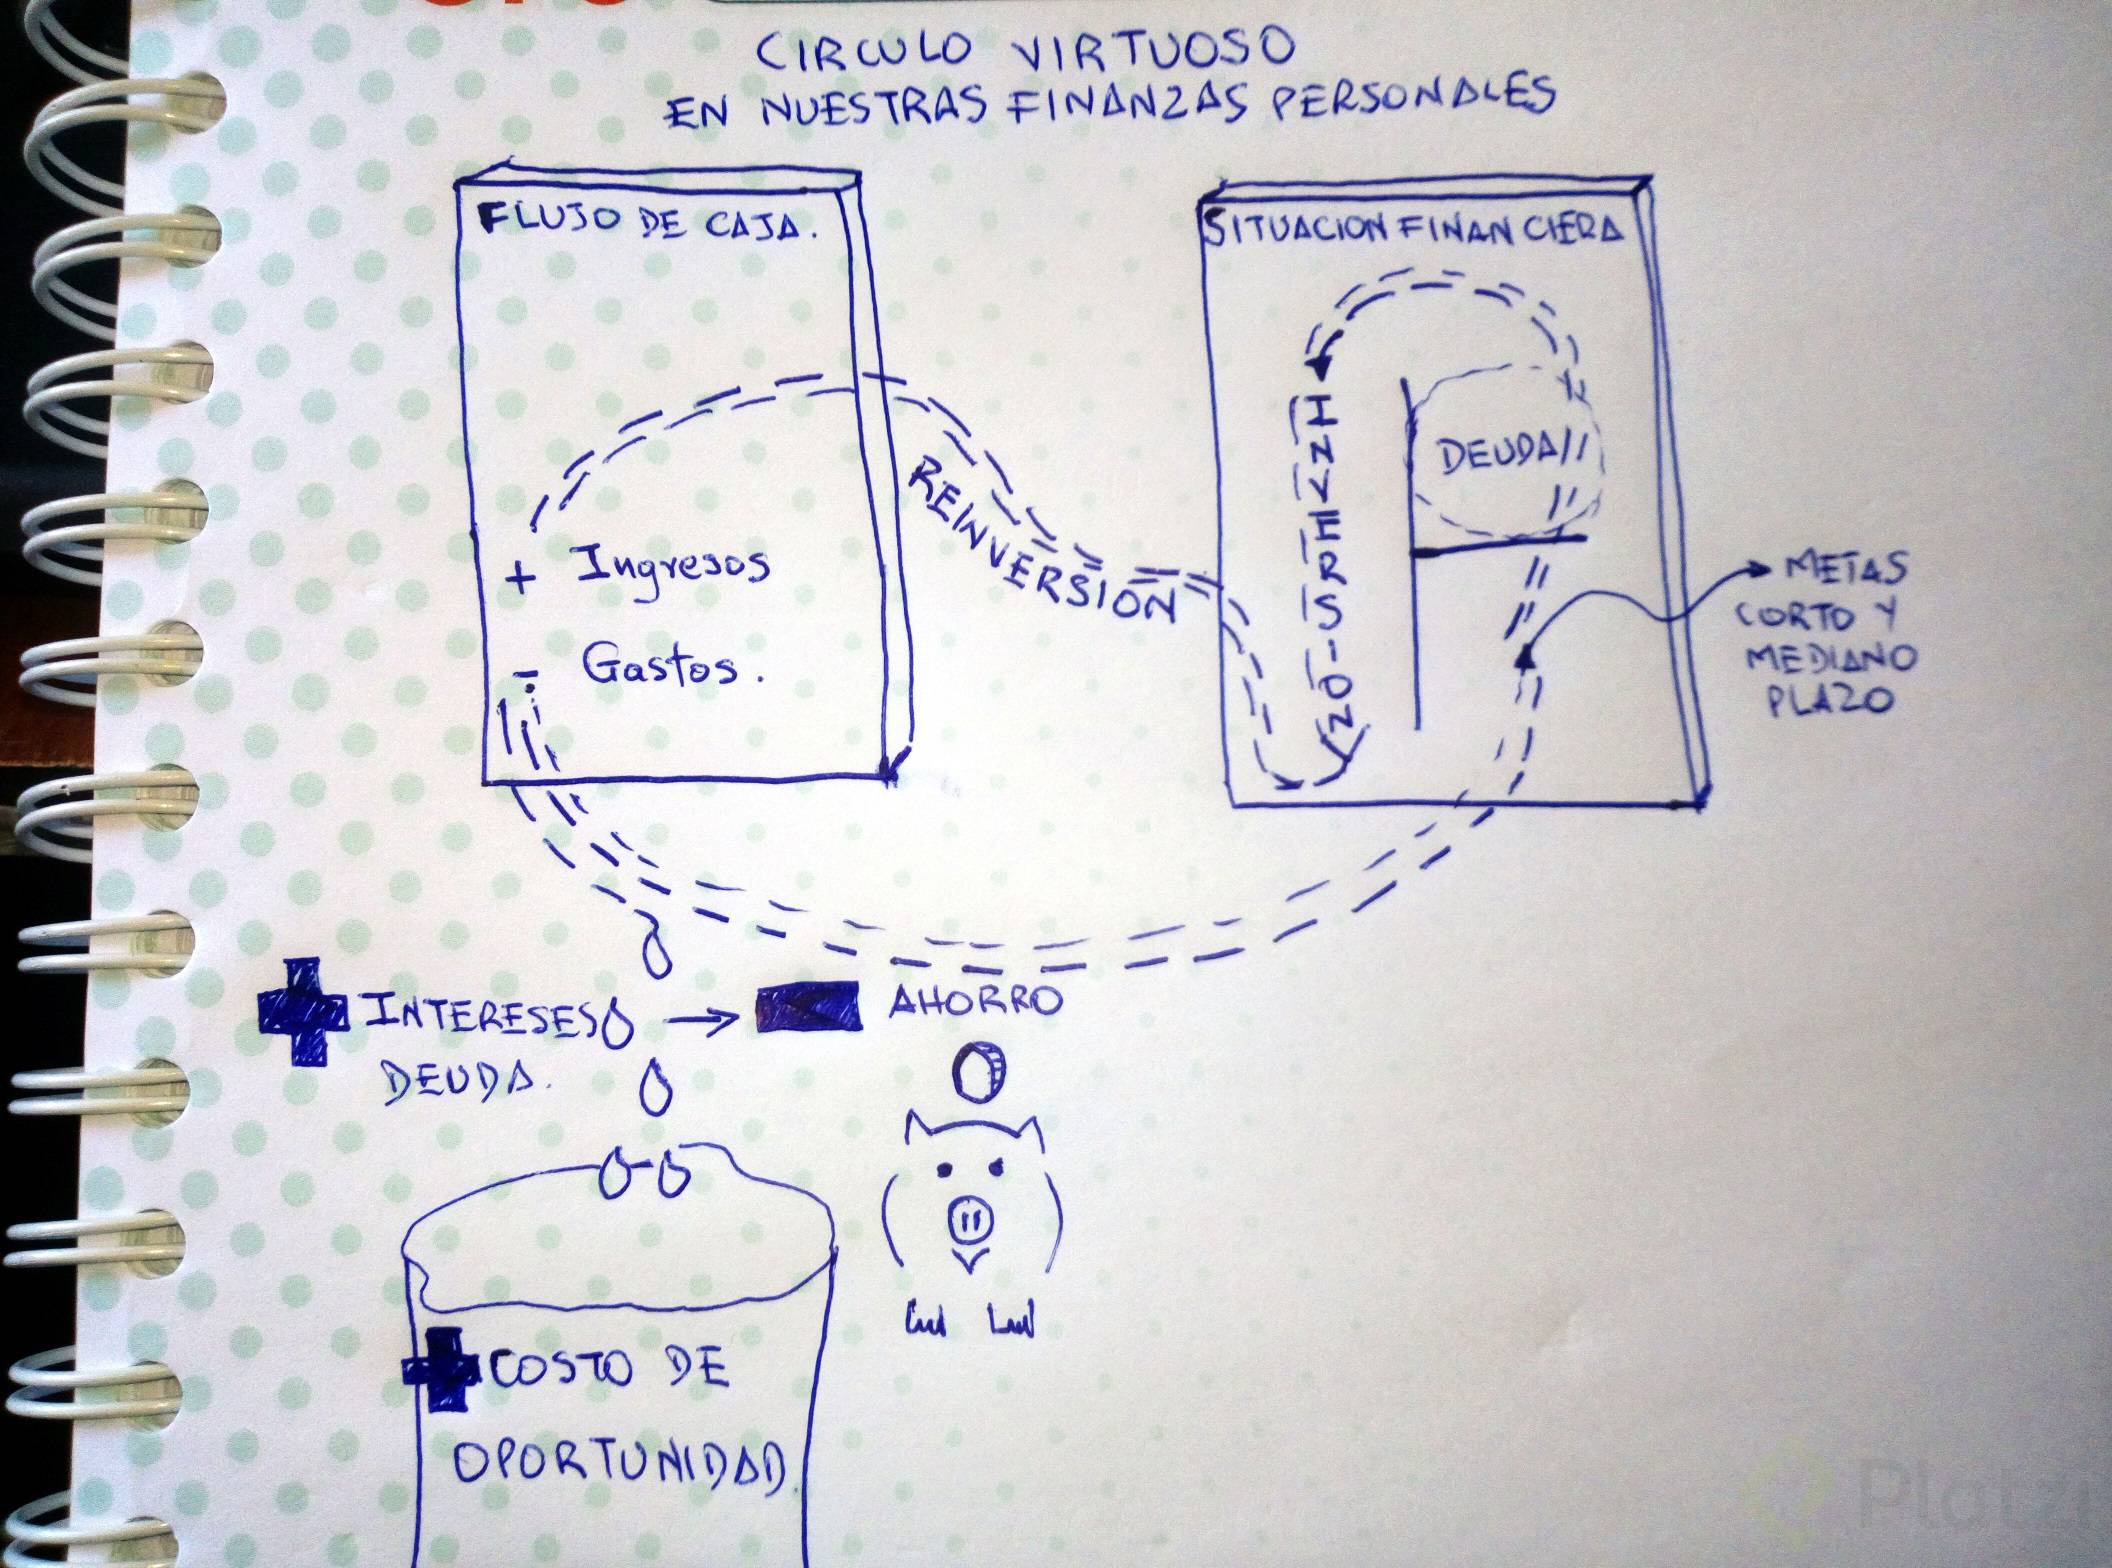 CIRCULO VIRTUOSO
EN NUESTRAS FINANZAS PERSONALES
FLUJO DE CAJA.
+ Ingresos
- Gastos.
REINVERSIÓN
SITUACION FINANCIERA
INVERSION
DEUDA
METAS
CORTO Y
MEDIANO
PLAZO
INTERESES → AHORRO
DEUDA.
COSTO DE
OPORTUNIDAD
Platzi